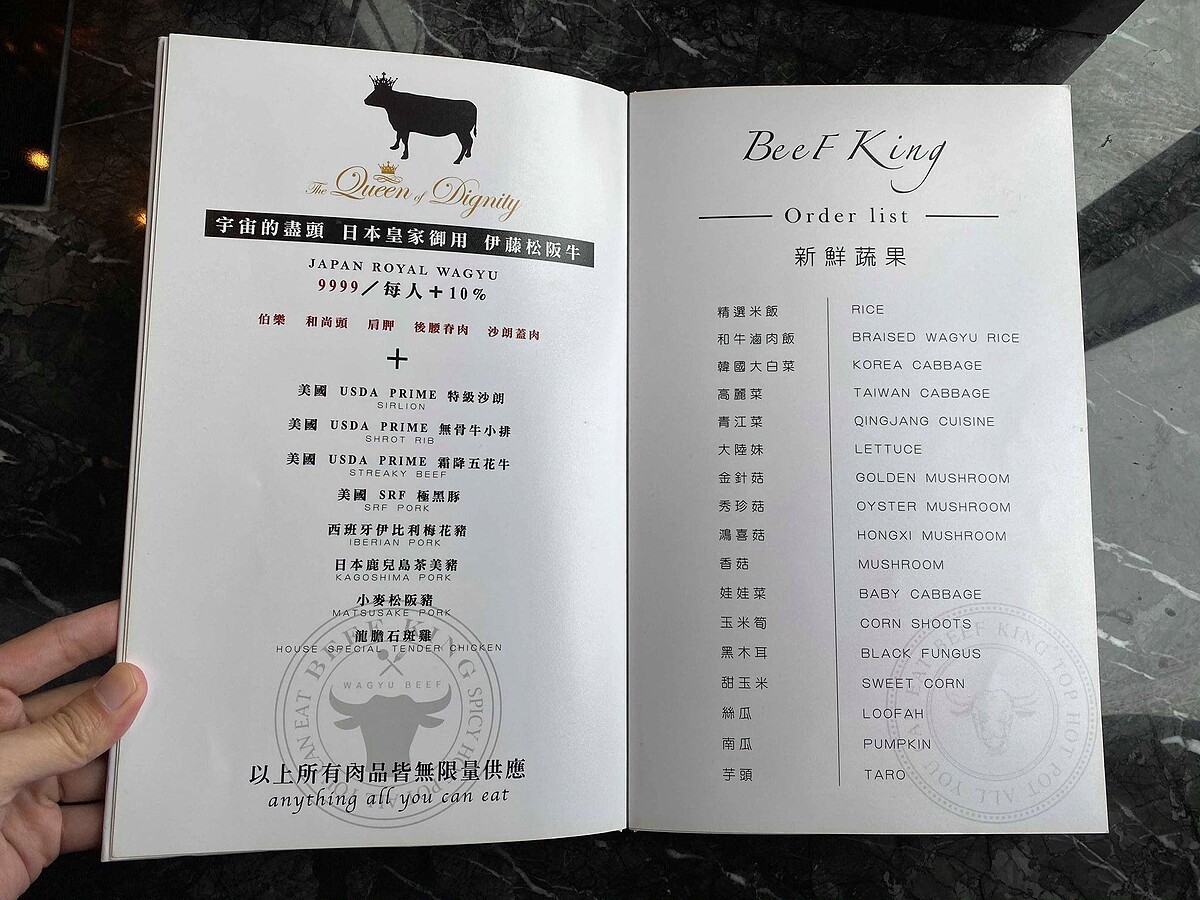 The Queen of Dignity
宇宙的盡頭 日本皇家御用 伊藤松阪牛
JAPAN ROYAL WAGYU
9999／每人＋10%
伯樂 和尚頭 肩胛 後腰脊肉 沙朗蓋肉
+
美國 USDA PRIME 特級沙朗
SIRLION
美國 USDA PRIME 無骨牛小排
SHROT RIB
美國 USDA PRIME 霜降五花牛
STREAKY BEEF
美國 SRF 極黑豚
SRF PORK
西班牙伊比利梅花豬
IBERIAN PORK
日本鹿兒島茶美豬
KAGOSHIMA PORK
小麥松阪豬
MATSUSAKE PORK
龍膽石斑雞
HOUSE SPECIAL TENDER CHICKEN
EAT BEEF KING SPICY
WAGYU BEEF
以上所有肉品皆無限量供應
anything all you can eat
Beef King
Order list
新鮮蔬果
精選米飯 RICE
和牛滷肉飯 BRAISED WAGYU RICE
韓國大白菜 KOREA CABBAGE
高麗菜 TAIWAN CABBAGE
青江菜 QINGJANG CUISINE
大陸妹 LETTUCE
金針菇 GOLDEN MUSHROOM
秀珍菇 OYSTER MUSHROOM
鴻喜菇 HONGXI MUSHROOM
香菇 MUSHROOM
娃娃菜 BABY CABBAGE
玉米筍 CORN SHOOTS
黑木耳 BLACK FUNGUS
甜玉米 SWEET CORN
絲瓜 LOOFAH
南瓜 PUMPKIN
芋頭 TARO
EAT BEEF KING TOP HOT POT ALL YOU